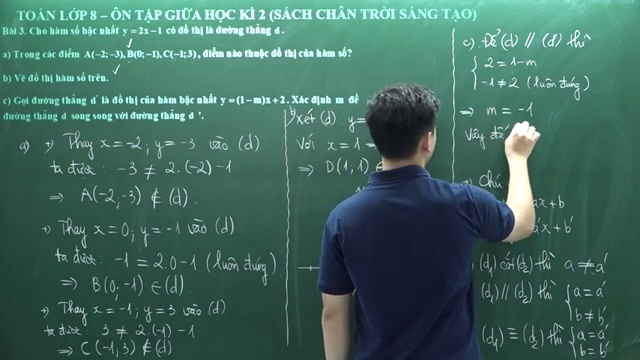 TOÁN LỚP 8 – ÔN TẬP GIỮA HỌC KÌ 2 (SÁCH CHÂN TRỜI SÁNG TẠO)
Bài 3. Cho hàm số bậc nhất y = 2x − 1 có đồ thị là đường thẳng d .
a) Trong các điểm A(−2; −3), B(0; −1), C(−1; 3), điểm nào thuộc đồ thị của hàm số?
b) Vẽ đồ thị hàm số trên.
c) Gọi đường thẳng d' là đồ thị của hàm bậc nhất y = (1 − m)x + 2 . Xác định m để
đường thẳng d song song với đường thẳng d '.
a) +) Thay x = -2, y = -3 vào (d)
ta được: -3 ≠ 2.(-2) -1
⇒ A(-2;-3) ∉ (d).
+) Thay x = 0; y = -1 vào (d)
ta được: -1 = 2.0 -1 (luôn đúng)
⇒ B(0,-1) ∈ (d).
+) Thay x = -1; y = 3 vào (d)
ta được: 3 ≠ 2.(-1) -1
⇒ C(-1;3) ∉ (d)
b) Xét (d) y =
Với x = 1
⇒ D(1;1) ∈
c) Để (d) // (d') thì
2 = 1-m
-1 ≠ 2 (luôn đúng)
⇒ m = -1
Vậy để
+) Chú
ax + b
a'x + b'
(d₁) cắt (d₂) thì a ≠ a'
(d₁) // (d₂) thì { a = a'
b ≠ b'
(d₁) ≡ (d₂) thì { a = a'
b = b'